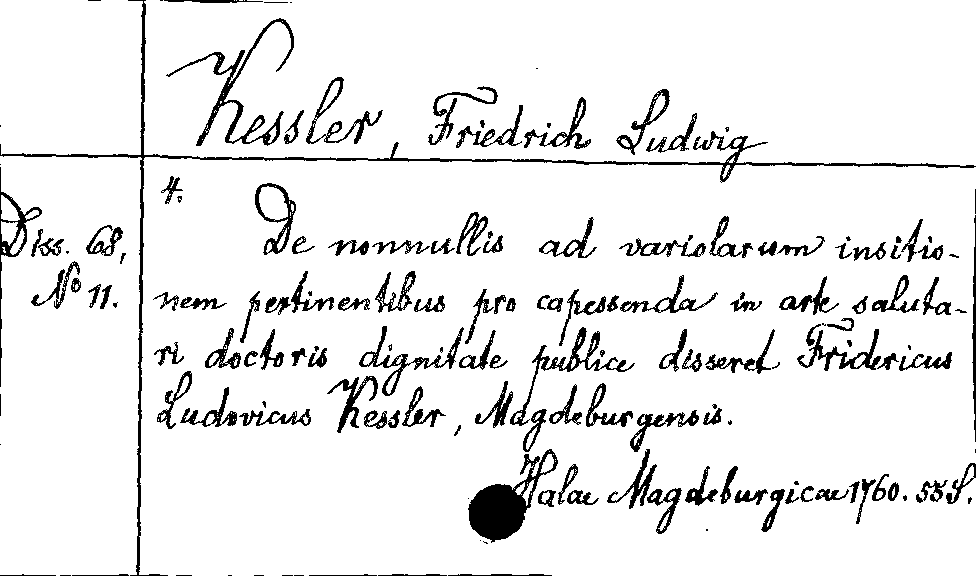 Kessler, Friedrich Ludwig
4.
Diss. 68,
No 11.
De nonnullis ad variolarum insitio-
nem pertinentibus pro capessenda in arte saluta-
ri doctoris dignitate publice disseret Fridericus
Ludovicus Kessler, Magdeburgensis.
Halae Magdeburgicae 1760. 55 S.